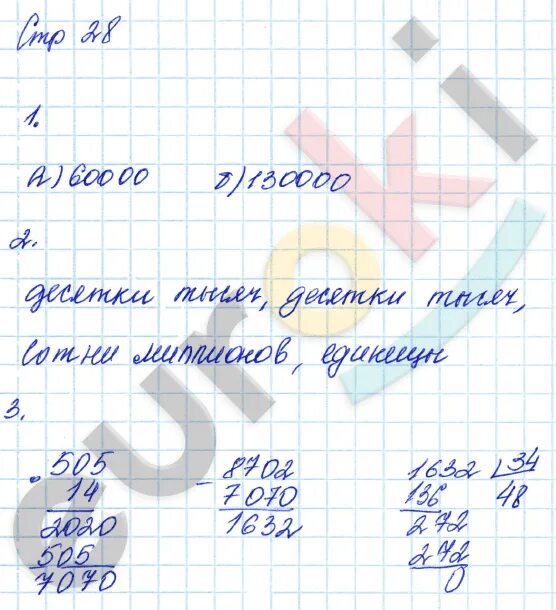 Стр 28
1.
А) 60000 б) 130000
2.
десятки тысяч, десятки тысяч,
сотни миллионов, единицы
3.
505
14
2020
505
7070
- 8702
7070
1632
1632 34
136 48
272
272
0
euroki